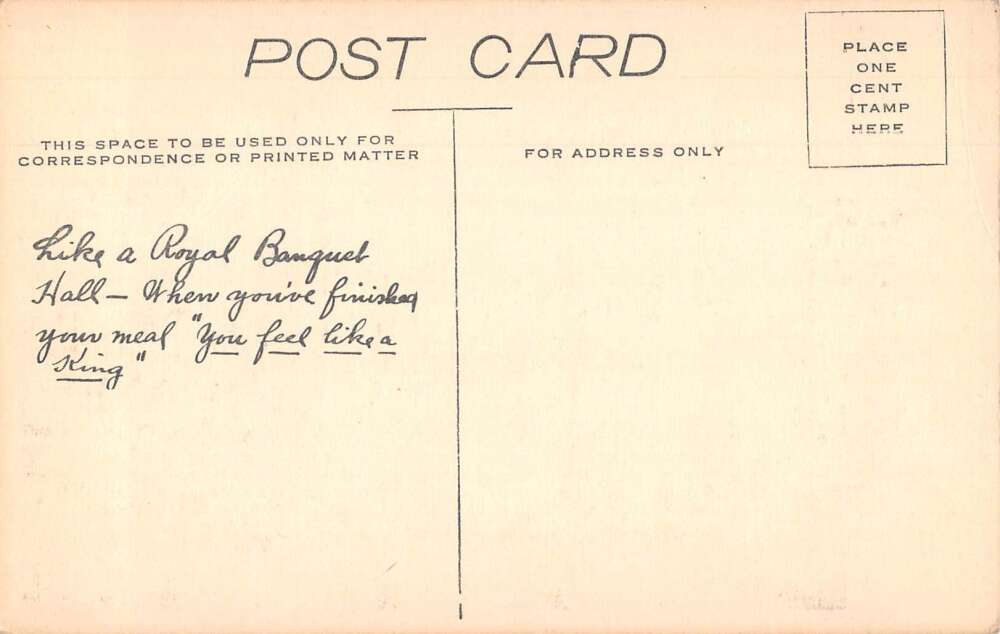 POST CARD
PLACE
ONE
CENT
STAMP
HERE
THIS SPACE TO BE USED ONLY FOR
CORRESPONDENCE OR PRINTED MATTER
FOR ADDRESS ONLY
Like a Royal Banquet
Hall — When you've finished
your meal "You feel like a
King"